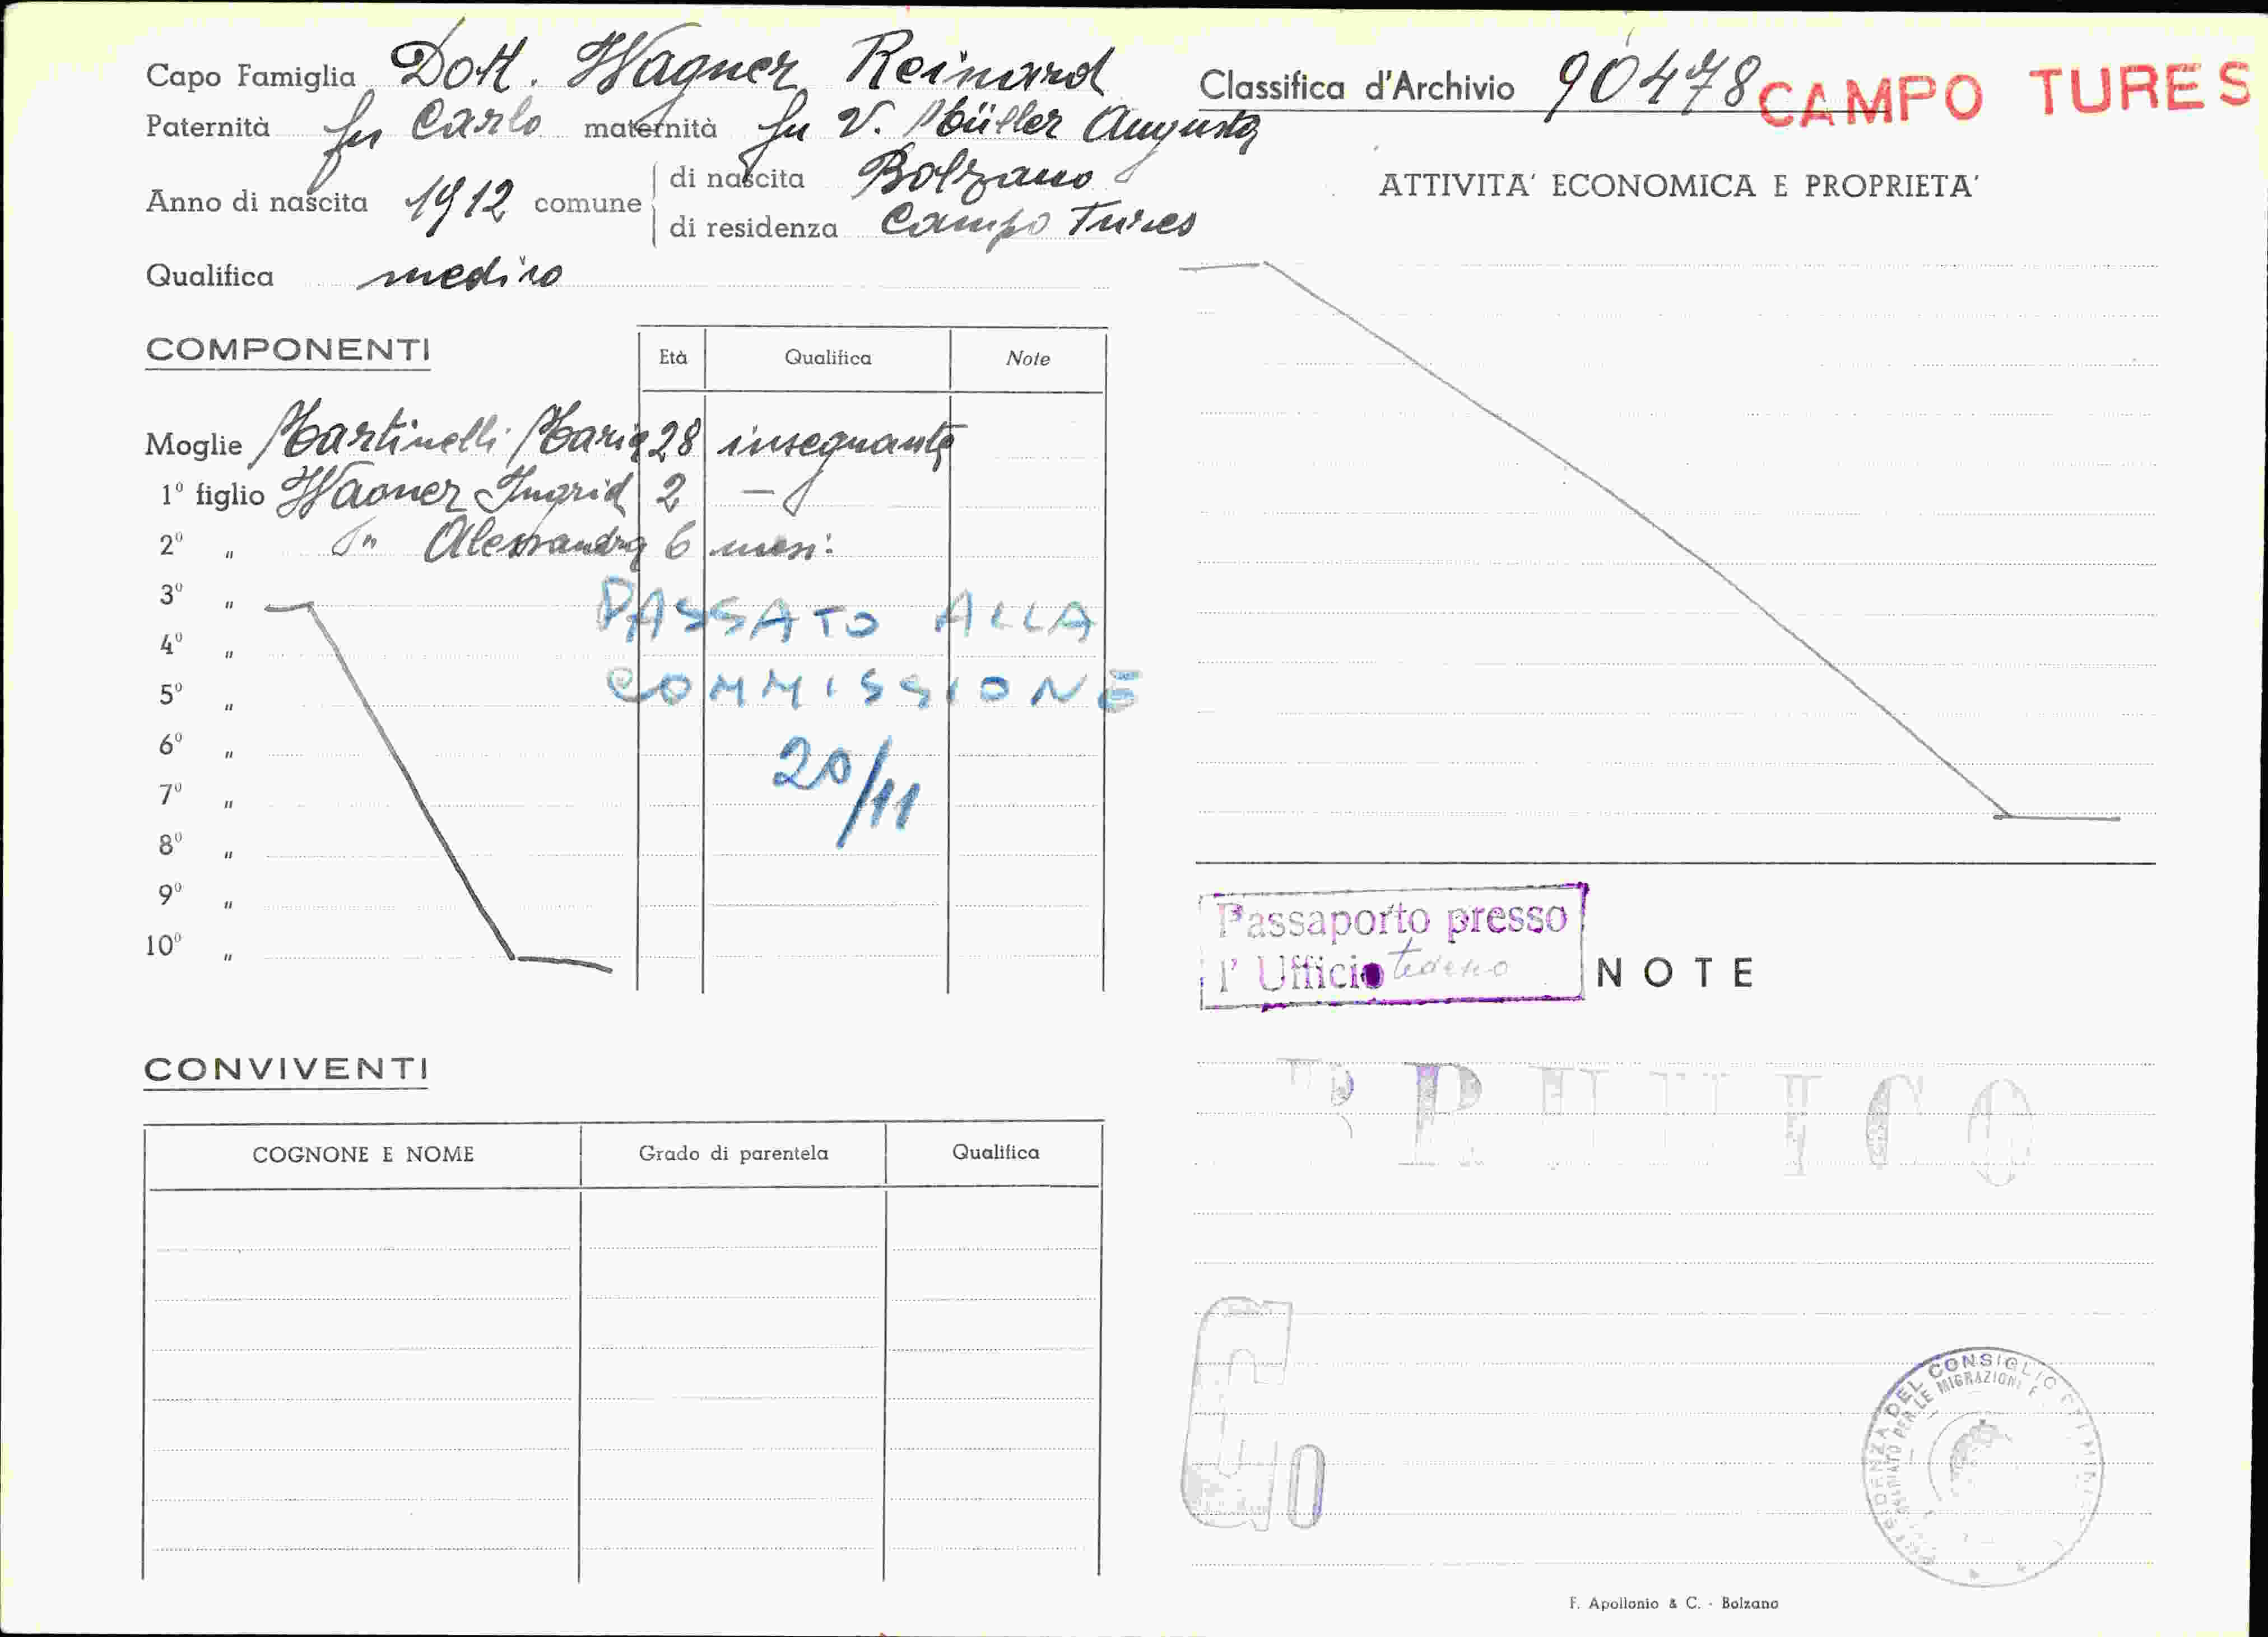 Capo Famiglia Dott. Wagner Reinard
Paternità fu Carlo maternità fu V. Müller Augusta
Anno di nascita 1912 comune di nascita Bolzano
di residenza Campo Tures
Qualifica medico
COMPONENTI Età Qualifica Note
Moglie Martinelli Maria 28 insegnante
1° figlio Wagner Ingrid 2 —
2° " " Alessandra 6 mesi
3° "
4° "
5° "
6° "
7° "
8° "
9° "
10° "
PASSATO ALLA
COMMISSIONE
20/11
CONVIVENTI
COGNONE E NOME Grado di parentela Qualifica
Classifica d'Archivio 90478 CAMPO TURES
ATTIVITA' ECONOMICA E PROPRIETA'
Passaporto presso
l' Ufficio tedesco
NOTE
BRUNICO
PRESIDENZA DEL CONSIGLIO
PER LE MIGRAZIONI E
F. Apollonio & C. - Bolzano